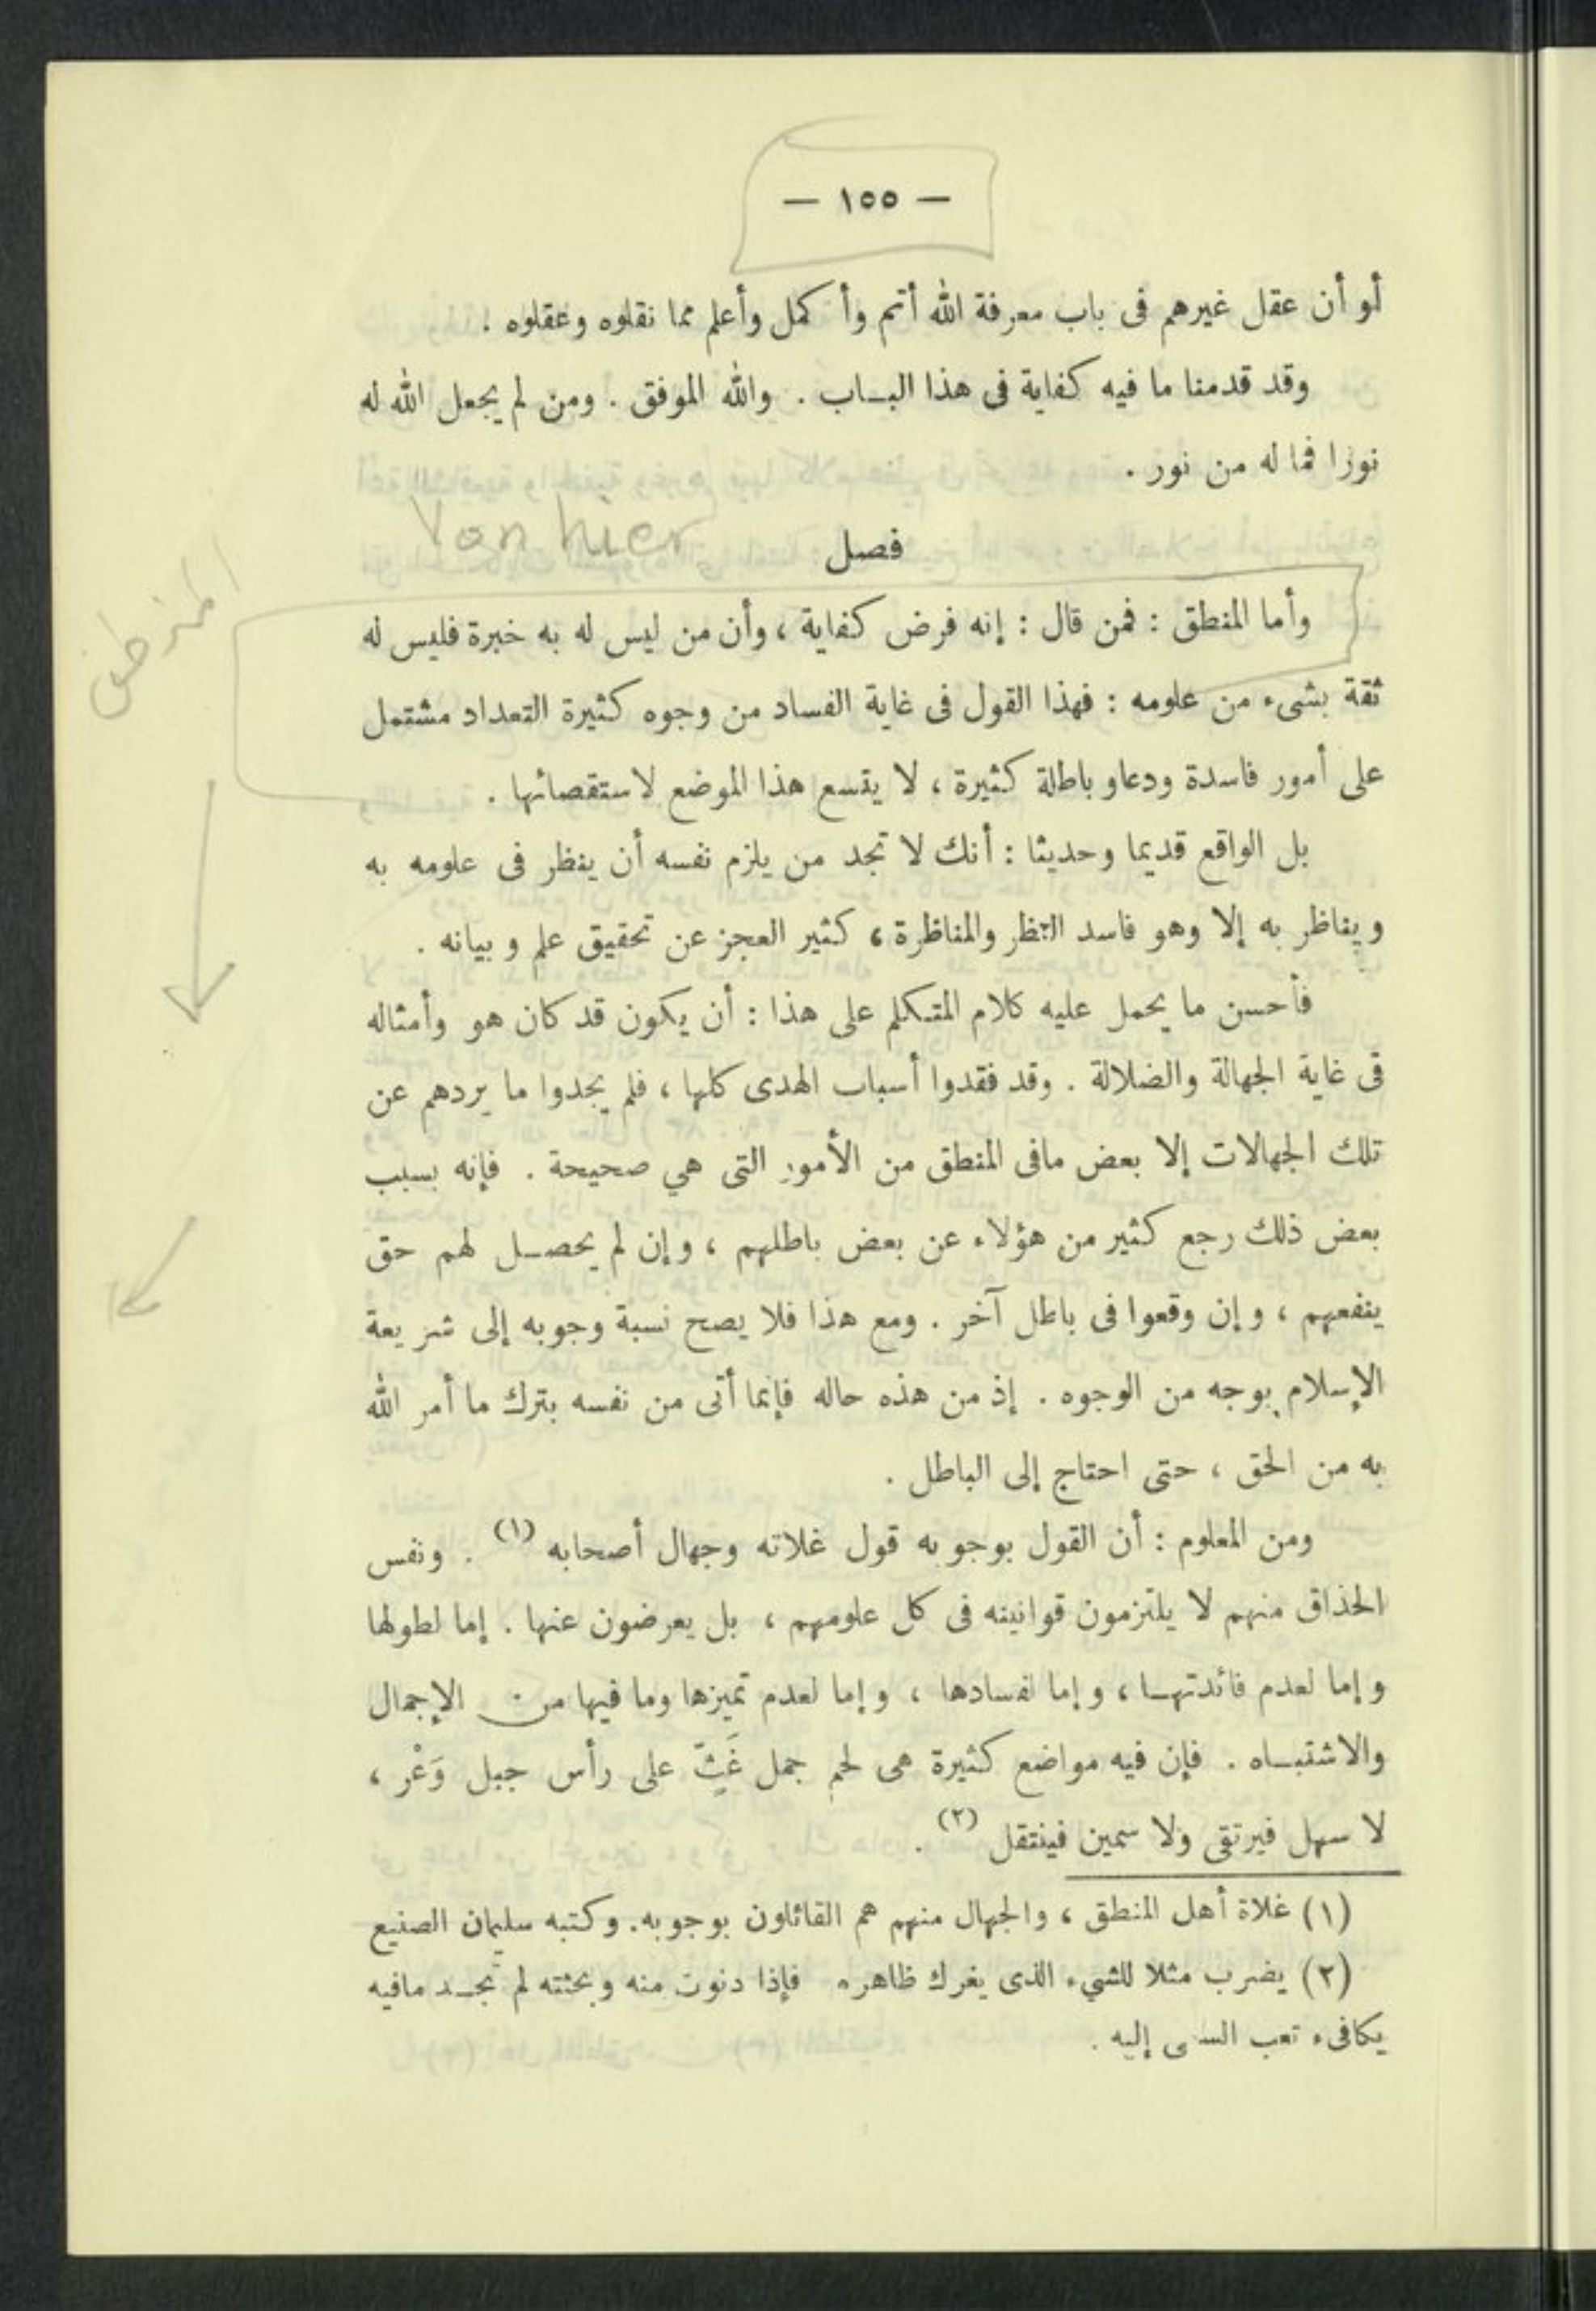 — ١٥٥ —
أو أن عقل غيرهم فى باب معرفة الله أتم وأكمل وأعلم مما نقلوه وعقلوه .
وقد قدمنا ما فيه كفاية فى هذا البـاب . والله الموفق . ومن لم يجعل الله له
نورا فما له من نور .
Von hier
فصل
المنطق
وأما المنطق : فمن قال : إنه فرض كفاية ، وأن من ليس له به خبرة فليس له
ثقة بشىء من علومه : فهذا القول فى غاية الفساد من وجوه كثيرة التعداد مشتمل
على أمور فاسدة ودعاو باطلة كثيرة ، لا يتسع هذا الموضع لاستقصائها .
بل الواقع قديما وحديثا : أنك لا تجد من يلزم نفسه أن ينظر فى علومه به
ويناظر به إلا وهو فاسد النظر والمناظرة ، كثير العجز عن تحقيق علم وبيانه .
فأحسن ما يحمل عليه كلام المتكلم على هذا : أن يكون قد كان هو وأمثاله
فى غاية الجهالة والضلالة . وقد فقدوا أسباب الهدى كلها ، فلم يجدوا ما يردهم عن
تلك الجهالات إلا بعض مافى المنطق من الأمور التى هي صحيحة . فإنه بسبب
بعض ذلك رجع كثير من هؤلاء عن بعض باطلهم ، وإن لم يحصـل لهم حق
ينفعهم ، وإن وقعوا فى باطل آخر . ومع هذا فلا يصح نسبة وجوبه إلى شريعة
الإسلام بوجه من الوجوه . إذ من هذه حاله فإنما أتى من نفسه بترك ما أمر الله
به من الحق ، حتى احتاج إلى الباطل .
ومن المعلوم : أن القول بوجوبه قول غلاته وجهال أصحابه (١) . ونفس
الحذاق منهم لا يلتزمون قوانينه فى كل علومهم ، بل يعرضون عنها . إما لطولها
وإما لعدم فائدتهـا ، وإما لفسادها ، وإما لعدم تميزها وما فيها من الإجمال
والاشتبـاه . فإن فيه مواضع كثيرة هى لحم جمل غَثٍّ على رأس جبل وَعْر ،
لا سهل فيرتقى ولا سمين فينتقل (٢) .
(١) غلاة أهل المنطق ، والجهال منهم هم القائلون بوجوبه. وكتبه سليمان الصنيع
(٢) يضرب مثلا للشيء الذى يغرك ظاهره فإذا دنوت منه وبحثته لم تجـد مافيه
يكافىء تعب السعى إليه .